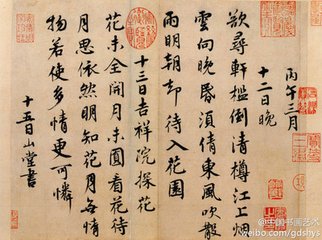 丙午三月
十二日晚
欲尋軒檻倒清樽江上烟
雲向晚昏須倩東風吹散
雨明朝却待入花園
十三日吉祥院探花
花未全開月未圓看花待
月思依然明知花月無情
物若使多情更可憐
十五日山堂書
@中国书画艺术
weibo.com/gdshys